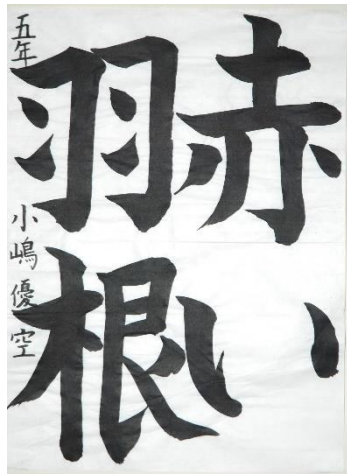 赤い
羽根
五年 小嶋優空